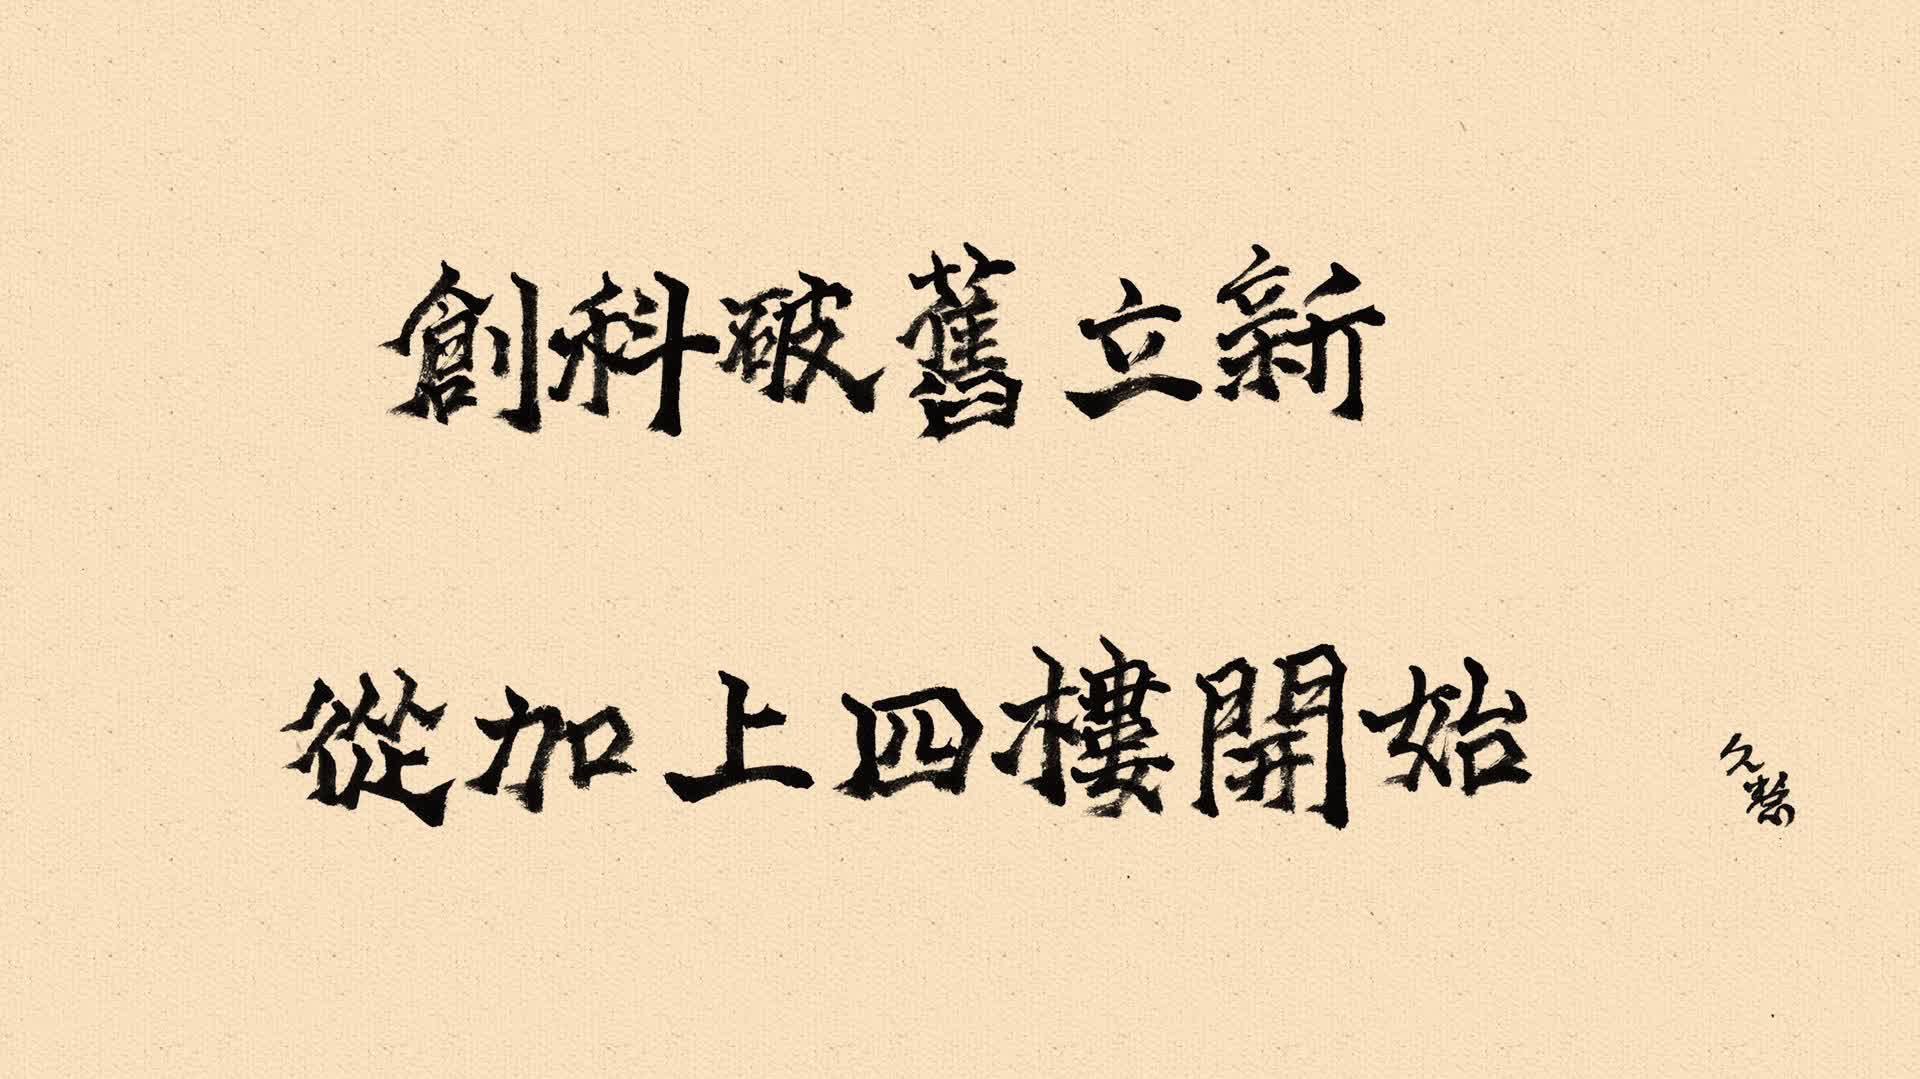 創科破舊立新
從加上四樓開始